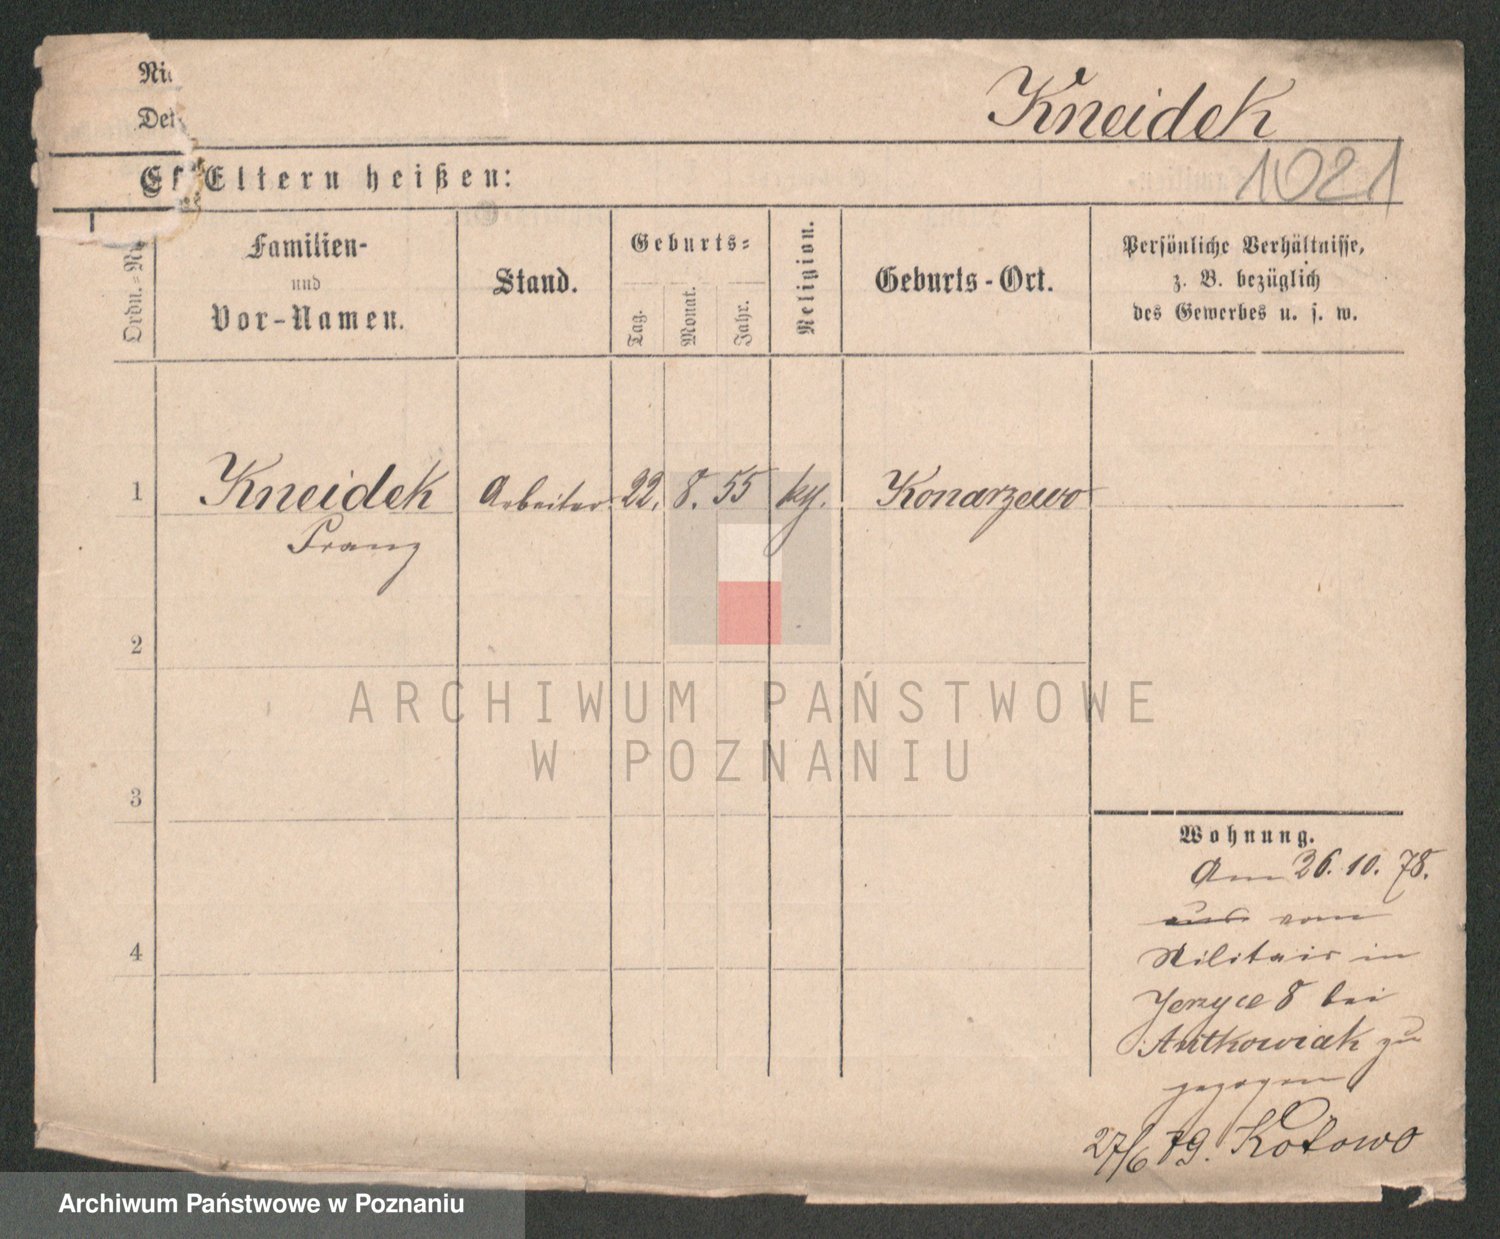 Kneidek
Eltern heißen:
1021
Ordn.=Nr.
Familien-
und
Vor-Namen.
Stand.
Geburts=
Tag.
Monat.
Jahr.
Religion.
Geburts-Ort.
Persönliche Verhältnisse,
z. B. bezüglich
des Gewerbes u. s. w.
1 Kneidek Arbeiter 22. 8. 55 Konarzewo
Franz
2
3
4
Wohnung.
Am 26. 10. 78.
aus vom
Militair in
Jerzyce 8 bei
Antkowiak zu
gezogen
27/6 79. Kotowo
ARCHIWUM PAŃSTWOWE
W POZNANIU
Archiwum Państwowe w Poznaniu